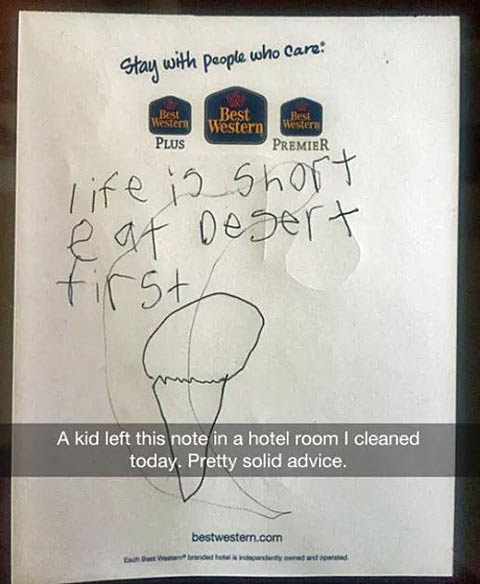 Stay with people who care.®
Best Western
Best Western
Best Western
PLUS
PREMIER
life is short
eat Desert
first
A kid left this note in a hotel room I cleaned
today. Pretty solid advice.
bestwestern.com
Each Best Western® branded hotel is independently owned and operated.